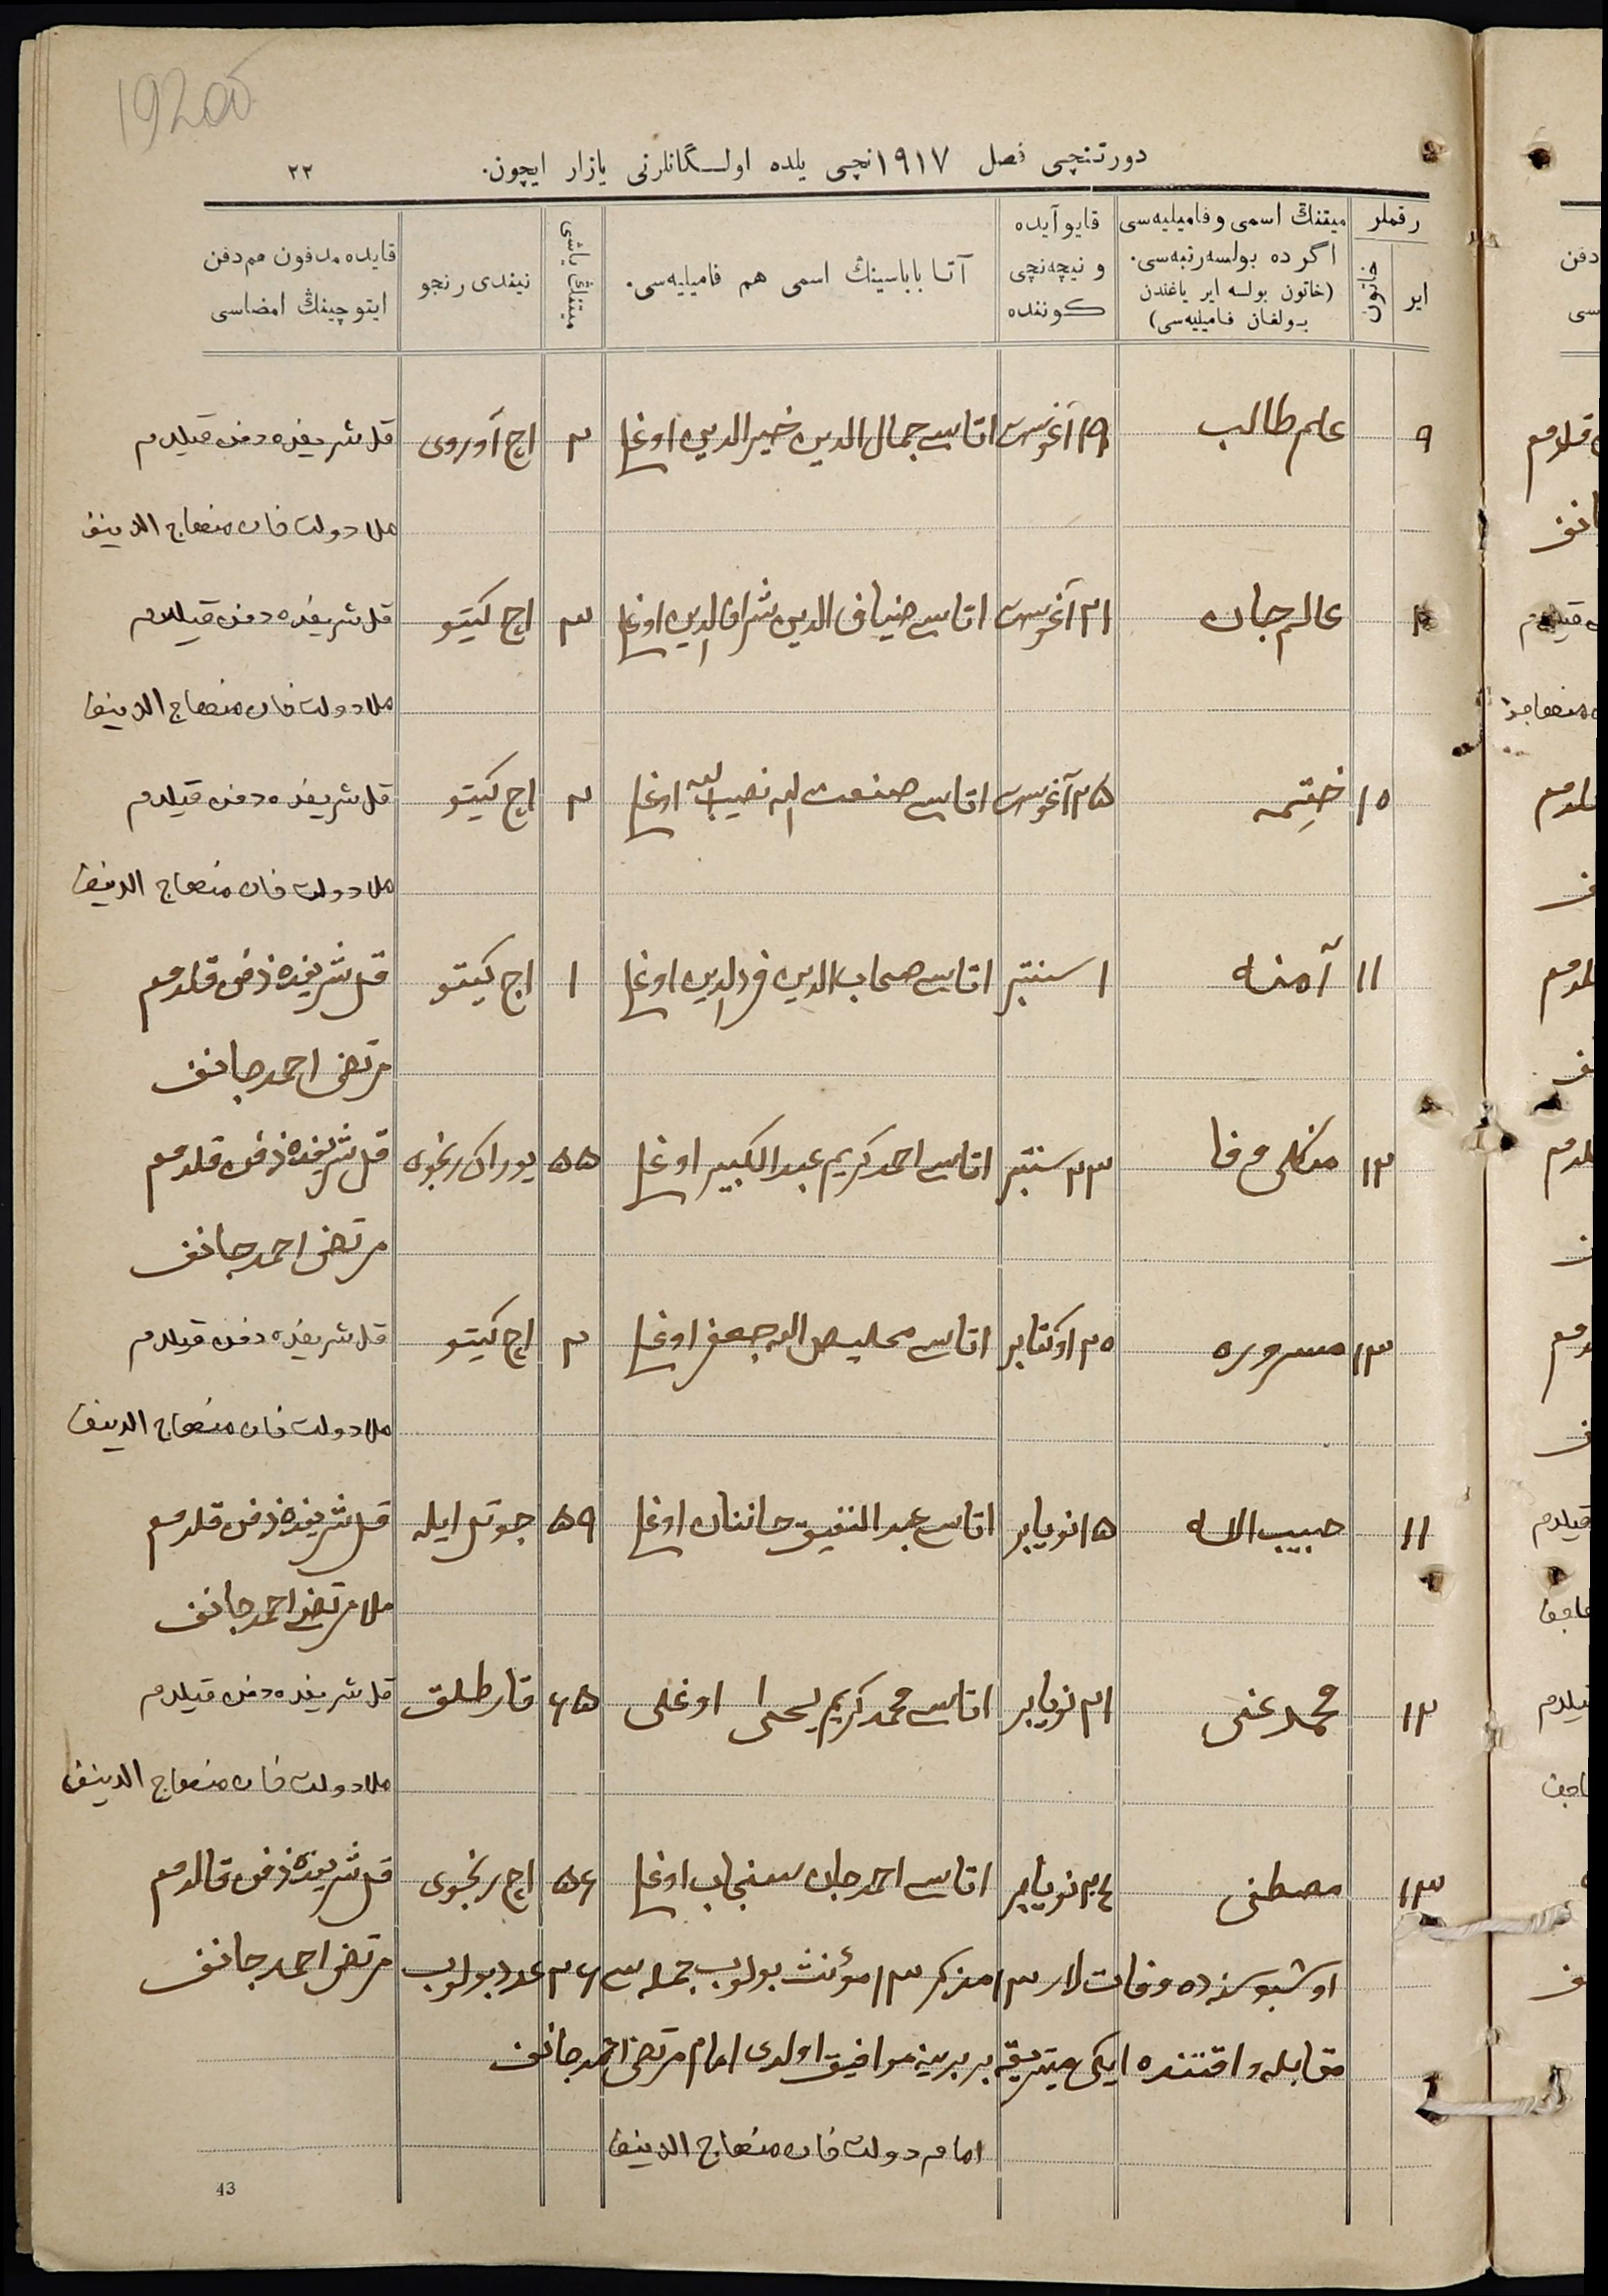 19200
دورتنچی فصل ۱۹۱۷نچی یلده اولـگانلرنی یازار ایچون.
۲۲
رقملر
ایر
خاتون
میتنڭ اسمی و فامیلیه‌سی
اگر ده بولسه رتبه‌سی.
(خاتون بولسه ایر یاغندن
بولغان فامیلیه‌سی)
قایو آیده
و نیچه‌نچی
کوننده
آتا باباسینڭ اسمی هم فامیلیه‌سی.
میتنڭ یاشی
نیندی رنجو
قایده مدفون هم دفن
ایتوچینڭ امضاسی
۹ علم طالب ۱۹ آغوست اتاسی جمال الدین خیرالدین اوغلی ۲ اچ آوروی قل شریفده دفن قیلدم
ملا دولت خان منهاج الدینف
عالم جان ۲۱ آغوست اتاسی ضیاف الدین شراف الدین اوغلی ۳ اچ کیتو قل شریفده دفن قیلدم
ملا دولت خان منهاج الدینف
۱۰ ختمه ۲۵ آغوست اتاسی صنعت الله نصیب الله اوغلی ۲ اچ کیتو قل شریفده دفن قیلدم
ملا دولت خان منهاج الدینف
۱۱ آمنه ۱ سنتبر اتاسی صحاب الدین فرالدین اوغلی ۱ اچ کیتو قل شریفده دفن قلدم
مرتضی احمدجانف
۱۲ منکلی وفا ۲۳ سنتبر اتاسی احمد کریم عبدالکبیر اوغلی ۵۵ یوراک رنجوه قل شریفده دفن قلدم
مرتضی احمدجانف
۱۳ مسروره ۲۰ اوکتابر اتاسی مخلیص الله جعفر اوغلی ۲ اچ کیتو قل شریفده دفن قیلدم
ملا دولت خان منهاج الدینف
۱۱ حبیب الله ۱۵ نویابر اتاسی عبد اوغلی ۵۹ جوتل ایله قل شریفده دفن قلدم
ملا مرتضی احمدجانف
۱۲ محمد غنی ۲۱ نویابر اتاسی محمد کریم یحیی اوغلی ۶۵ قارطلق قل شریفده دفن قیلدم
ملا دولت خان منهاج الدینف
۱۳ مصطفی ۲۴ نویابر اتاسی احمد جان اوغلی ۵۶ اچ رنجوی قل شریفده دفن قالدم
اوشبو سنه ده وفات لار ۱۳ مذکر ۱۳ مؤنث بولوب جمله سی ۲۶ عدد بولوب مرتضی احمدجانف
مقابله واقتنده ایکی میتریقه بر برینه موافیق اولدی امام مرتضی احمدجانف
امام دولت خان منهاج الدینف
43